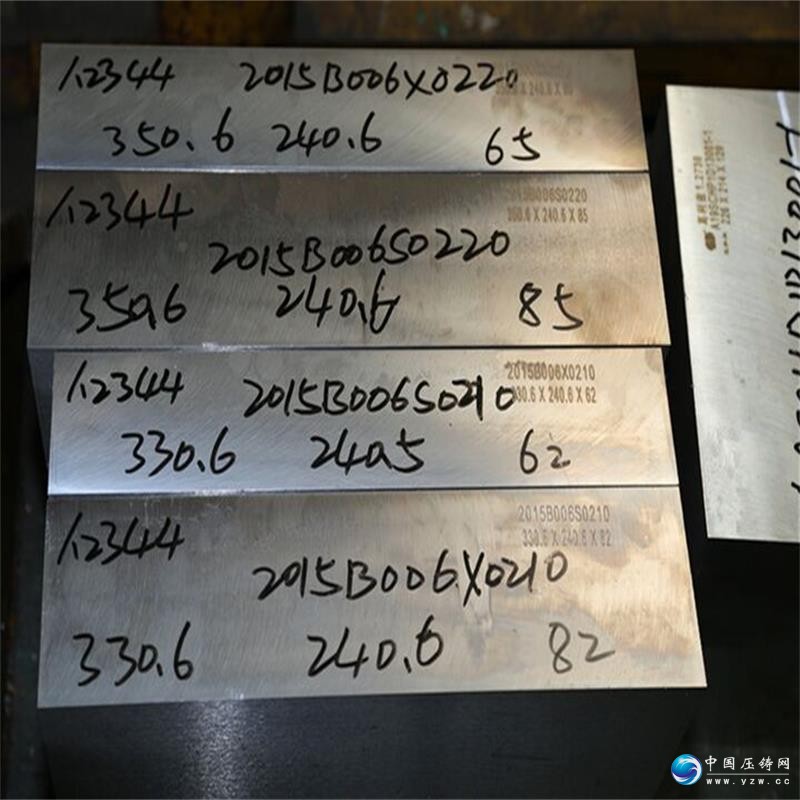 1.2344 2015B006X0220
350.6 240.6 65
2015B006S0220
350.6 X 240.6 X 85
1.2344
2015B006S0220
350.6 240.6 85
2015B006X0210
330.6 X 240.6 X 62
1.2344 2015B006S0210
330.6 240.5 62
2015B006S0210
330.6 X 240.6 X 82
1.2344
2015B006X0210
330.6 240.6 82
1.2738
226 X 214 X 129
中国压铸网
www.yzw.cc